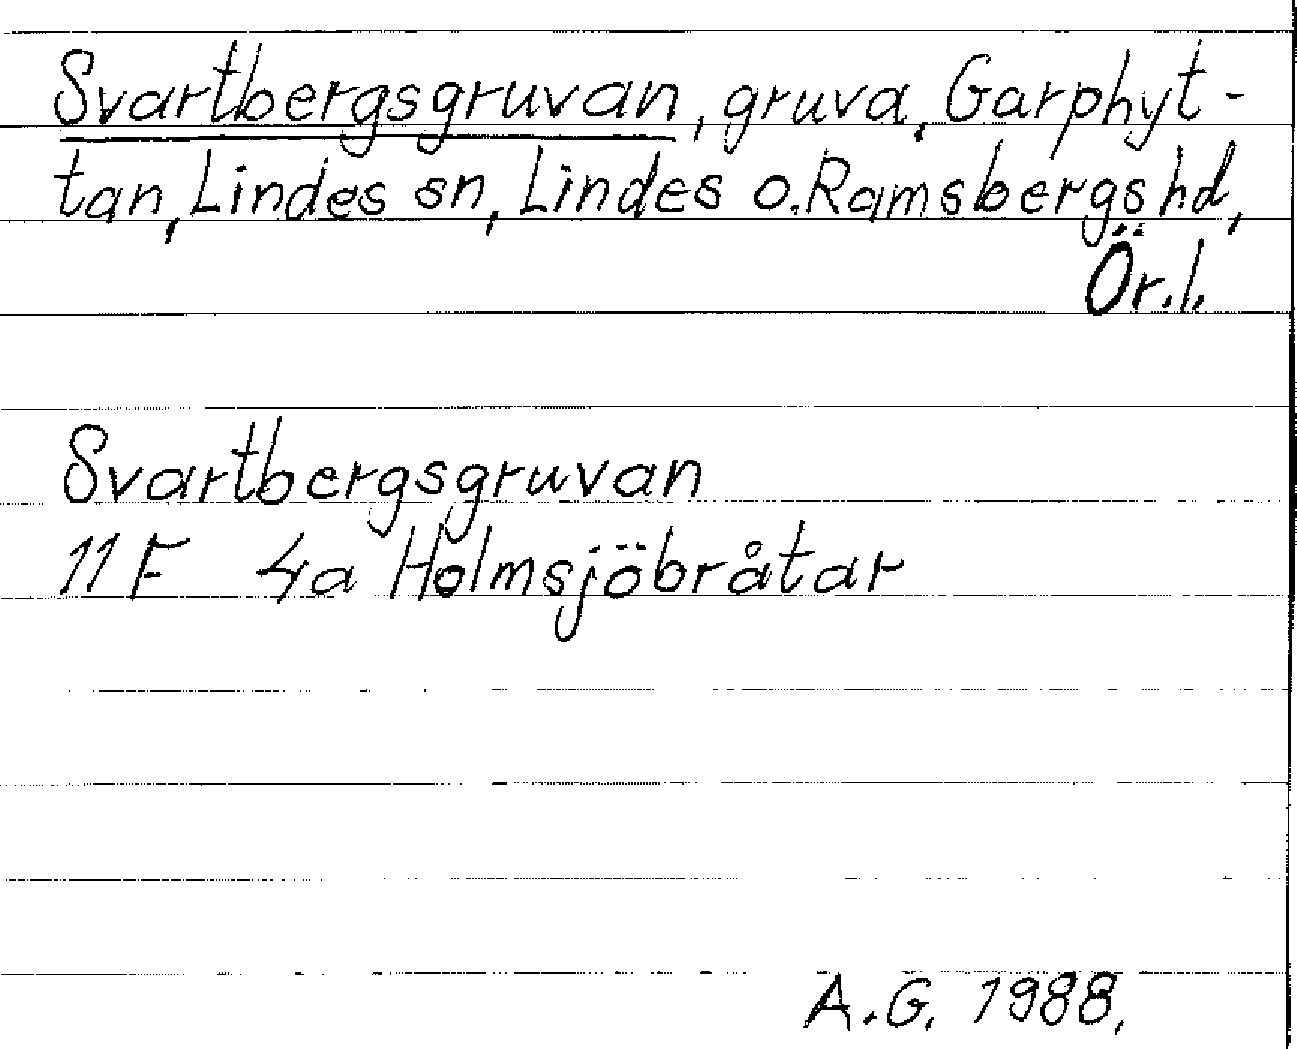 Svartbergsgruvan, gruva, Garphyt-
tan, Lindes sn, Lindes o. Ramsbergs hd,
Ör.l.
Svartbergsgruvan
11F 4a Holmsjöbråtar
A.G. 1988.